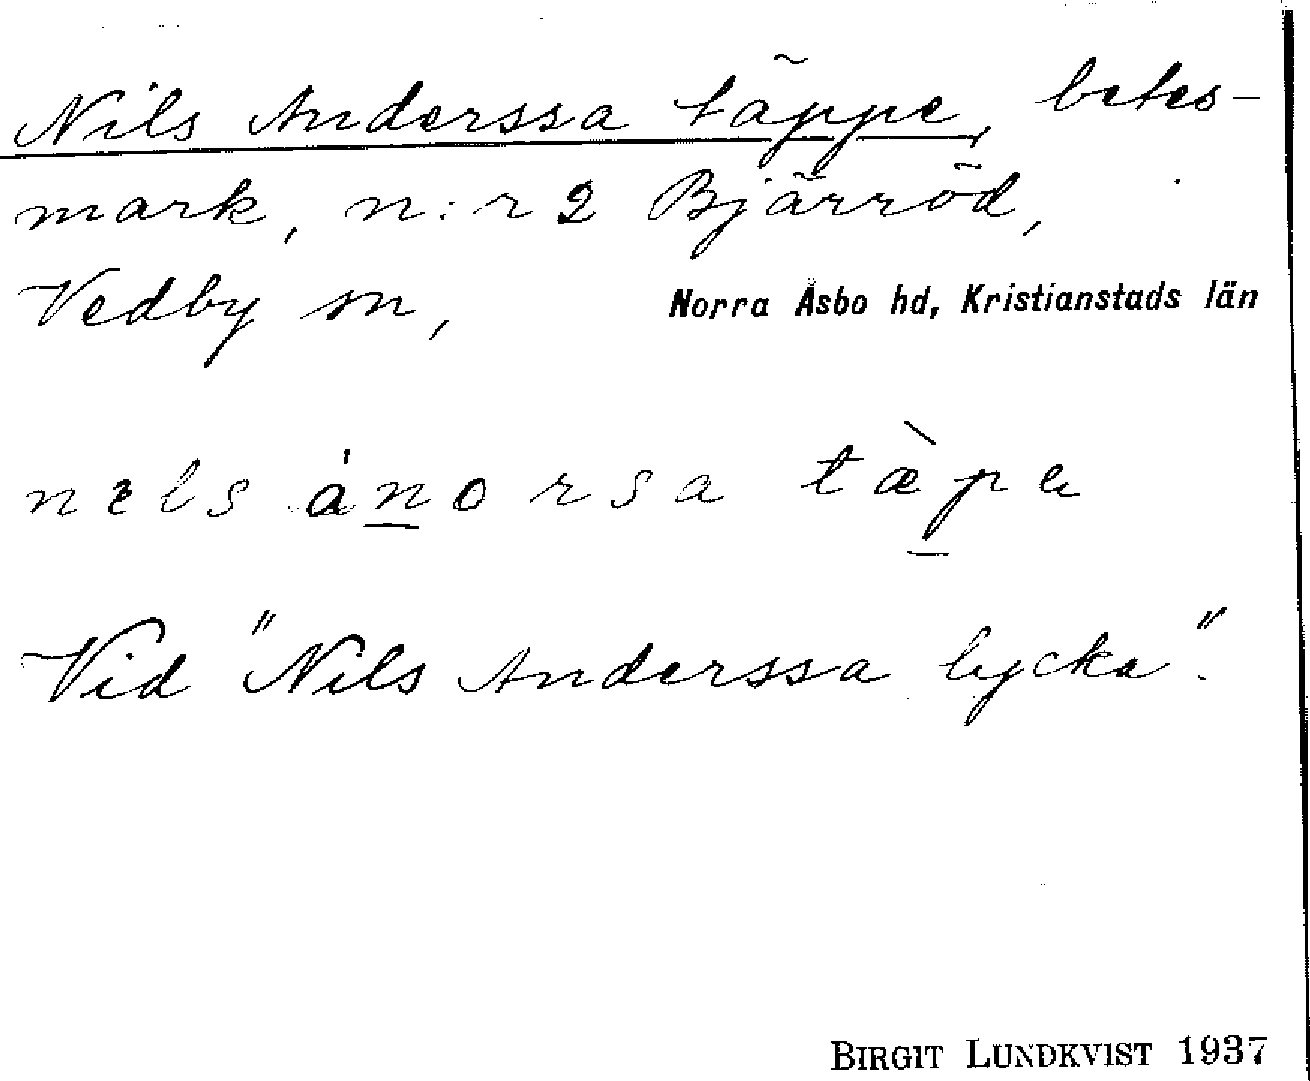 Nils Anderssa täppe, betes-
mark, n:r 2 Bjärröd,
Vedby sn, Norra Åsbo hd, Kristianstads län
nels ánorsa tæ̀pe
Vid "Nils Anderssa lycka".
BIRGIT LUNDKVIST 1937